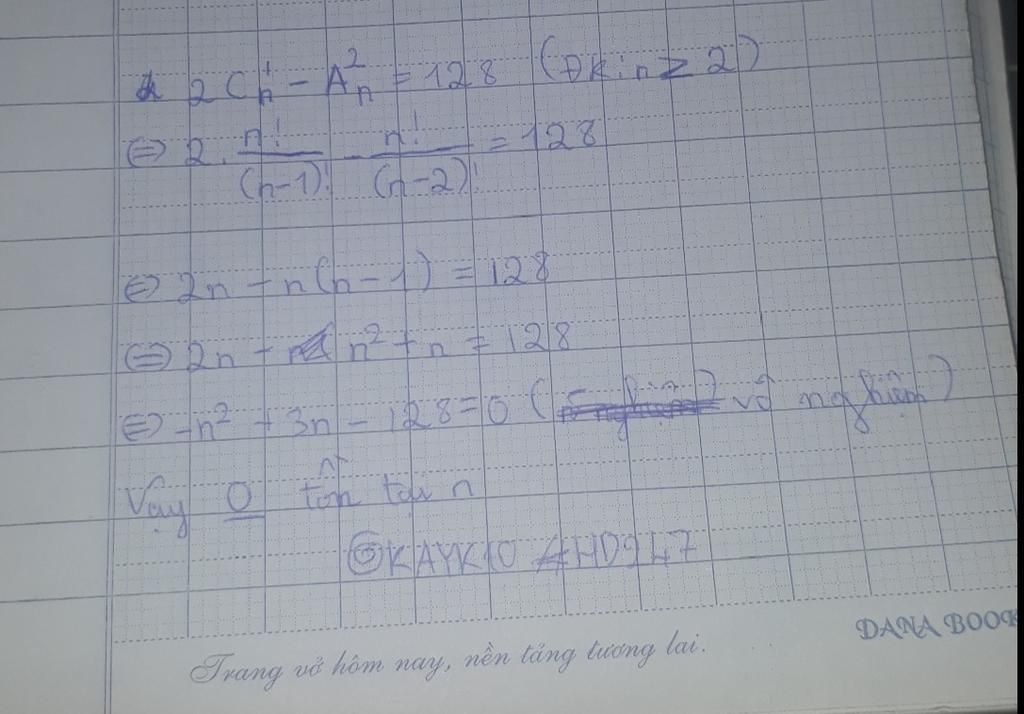 2C¹ₙ - A²ₙ = 128 (ĐK: n ≥ 2)
⇔ 2. n!/(n-1)! - n!/(n-2)! = 128
⇔ 2n - n(n-1) = 128
⇔ 2n - n² + n = 128
⇔ -n² + 3n - 128 = 0 (vô nghiệm)
Vậy 0 tồn tại n
DANA BOOK
Trang vở hôm nay, nền tảng tương lai.